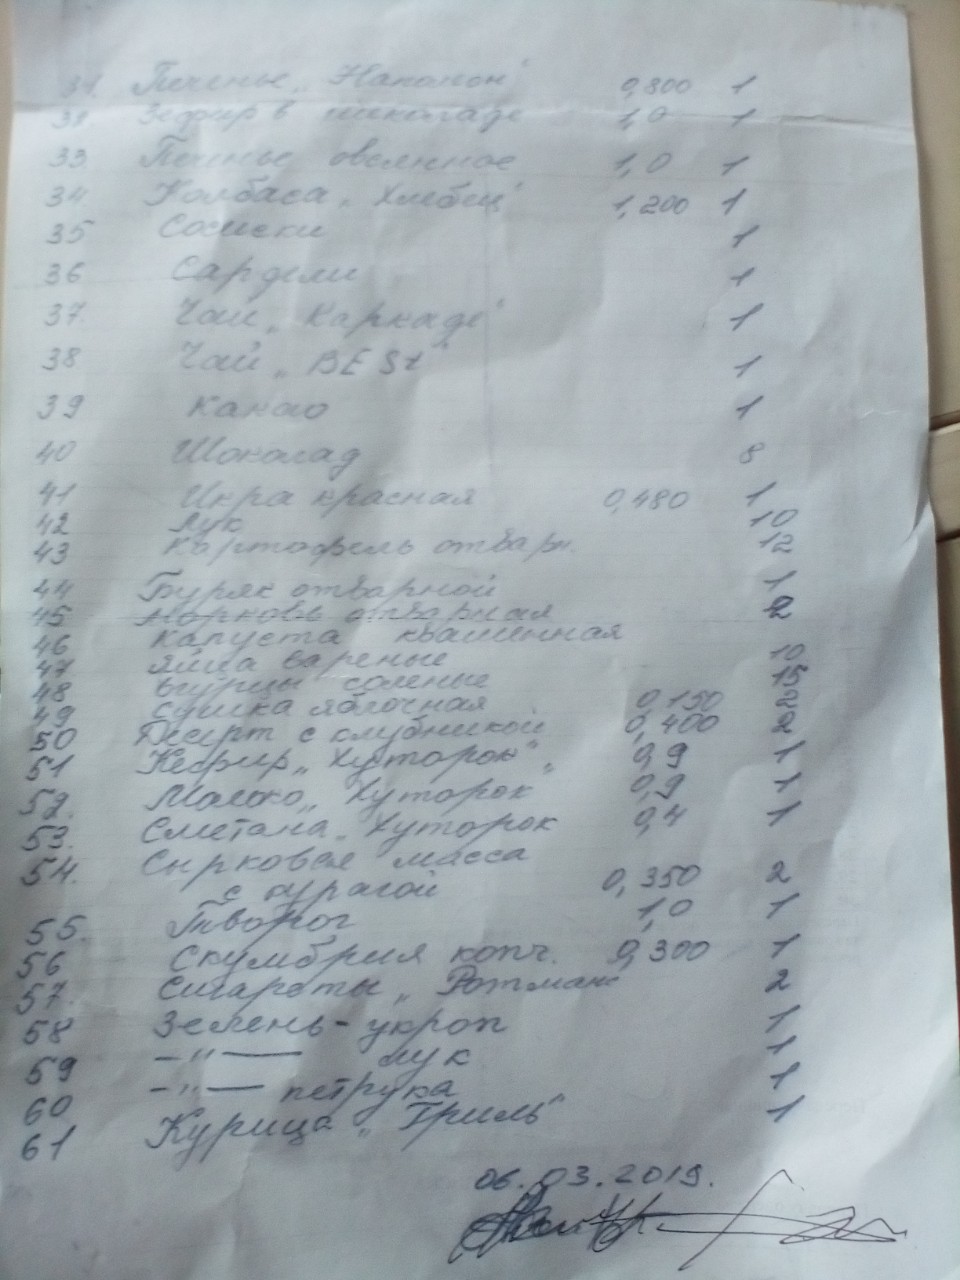 31. Печенье „Наполеон" 0,800 1
32 Зефир в шоколаде 1,0 1
33. Печенье овсянное 1,0 1
34 Колбаса „Хлебец" 1,200 1
35 Сосиски 1
36 Сардели 1
37. Чай „Каркаде" 1
38 Чай „BESt" 1
39 Какао 1
40 Шоколад 8
41 Икра красная 0,480 1
42 Лук 10
43 Картофель отварн. 12
44 Буряк отварной 1
45 Морковь отварная 2
46 Капуста квашенная
47 Яйца вареные 10
48 Огурцы соленые 15
49 Сушка яблочная 0,150 2
50 Десерт с клубникой 0,400 2
51 Кефир „Хуторок" 0,9 1
52. Молоко „Хуторок" 0,9 1
53. Сметана „Хуторок 0,4 1
54. Сырковая масса
с курагой 0,350 2
55. Творог 1,0 1
56 Скумбрия копч. 0,300 1
57. Сигареты „Ротманс 2
58 Зелень - укроп 1
59 -"- лук 1
60 -"- петрука 1
61 Курица „Гриль" 1
06.03.2019.